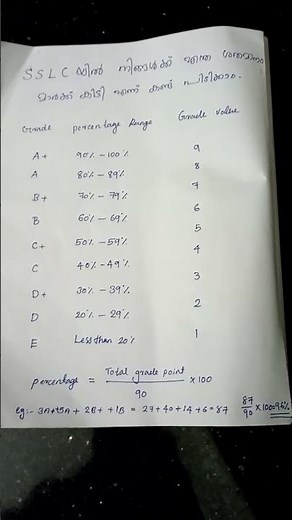 SSLC യിൽ നിങ്ങൾക്ക് എത്ര ശതമാനം
മാർക്ക് കിട്ടി എന്ന് കണ്ട് പിടിക്കാം.
Grade percentage Range Grade value
A+ 90% - 100% 9
A 80% - 89% 8
B+ 70% - 79% 7
B 60% - 69% 6
C+ 50% - 59% 5
C 40% - 49% 4
D+ 30% - 39% 3
D 20% - 29% 2
E Less than 20% 1
percentage = Total grade point / 90 × 100
eg:- 3A+ 5A + 2B+ + 1B = 27 + 40 + 14 + 6 = 87 87/90 × 100 = 96%